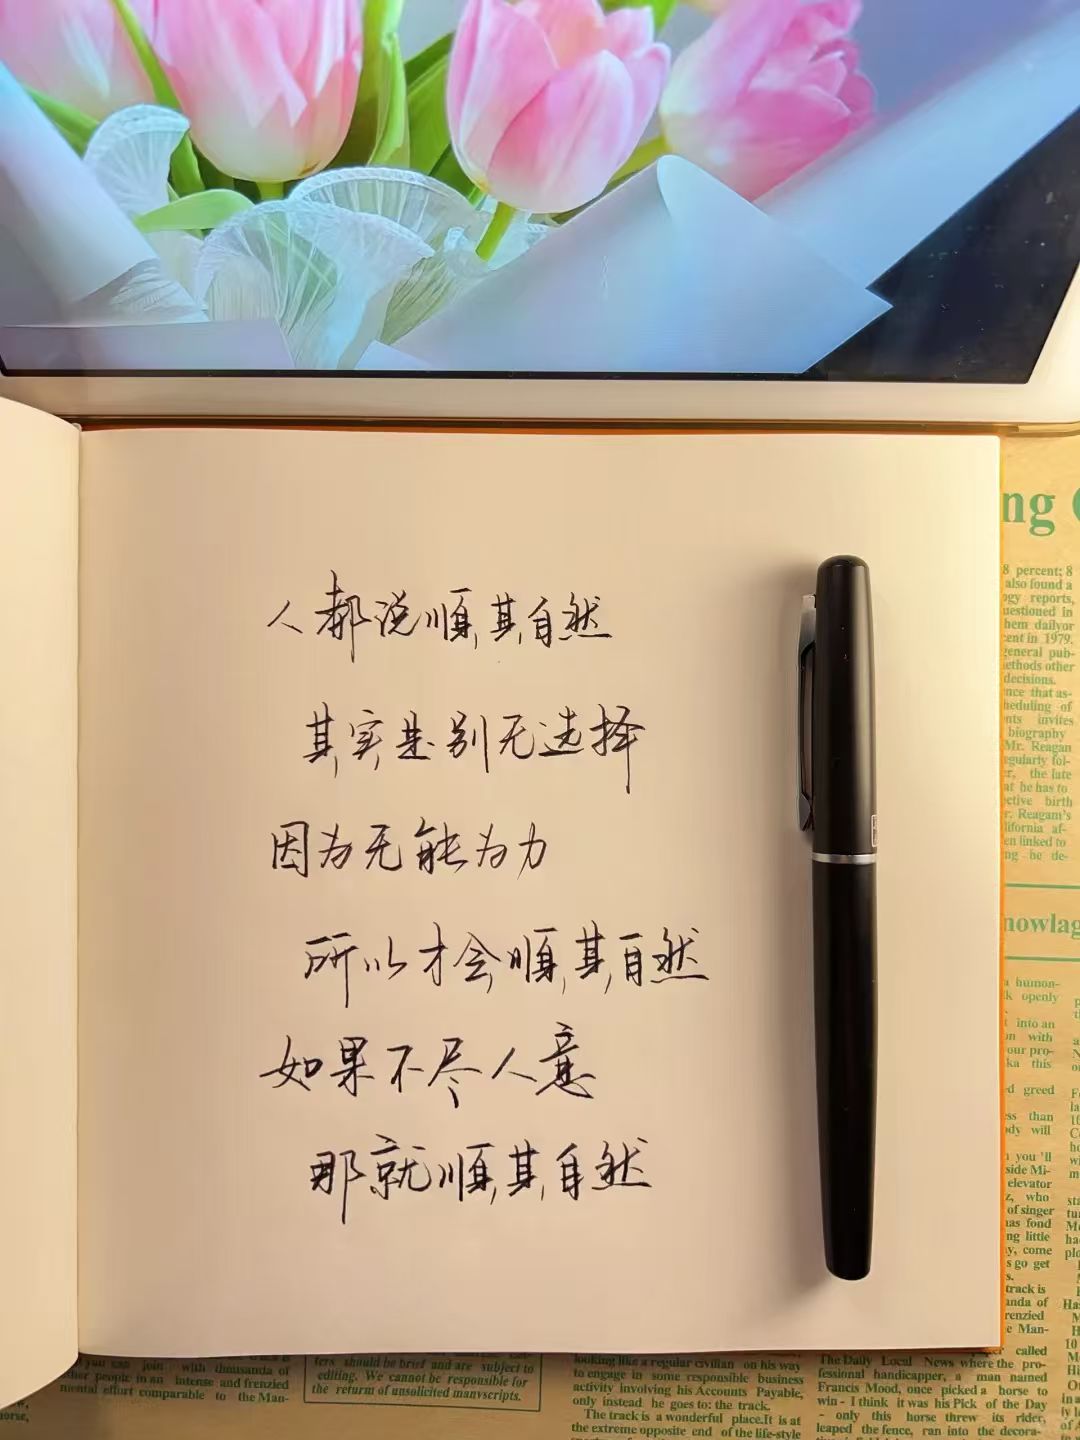 人都说顺其自然
其实是别无选择
因为无能为力
所以才会顺其自然
如果不尽人意
那就顺其自然
ng
8 percent; 8
also found a
gy reports,
uestioned in
hem dailyor
cent in 1979.
general pub-
ethods other
decisions.
nce that as-
heduling of
nts invites
biography
Mr. Reagan
egularly fol-
r, the late
at he has to
ective birth
r. Reagam's
lifornia af-
en linked to
ng he de-
nowlag
a humon-
k openly
into an
on with
our pro-
ka this
d greed
ss than
ody will
you'll
side Mi-
elevator
z, who
of singer
has fond
ng little
y, come
s go get
s.
track is
anda of
renzied
e Man-
you can join with thousands of
other people in an intense and frenzied
mental effort comparable to the Man-
ters should be brief and are subject to
editing. We cannot be responsible for
the return of unsolicited manvscripts.
looking like a regular civilian on his way
to engage in some responsible business
activity involving his Accounts Payable,
only instead he goes to: the track.
The track is a wonderful place.It is at
the extreme opposite end of the life-style
paper called
The Daily Local News where the pro-
fessional handicapper, a man named
Francis Mood, once picked a horse to
win - I think it was his Pick of the Day
- only this horse threw its rider,
leaped the fence, ran into the decora-